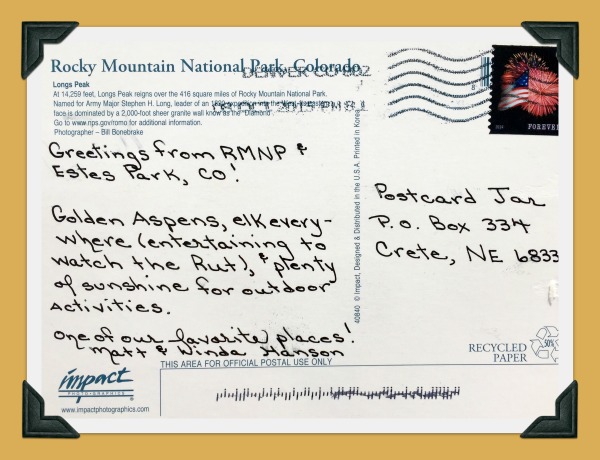 Rocky Mountain National Park, Colorado
DENVER CO 802
Longs Peak
At 14,259 feet, Longs Peak reigns over the 416 square miles of Rocky Mountain National Park.
Named for Army Major Stephen H. Long, leader of an 1820 expedition
face is dominated by a 2,000-foot sheer granite wall know as the "Diamond".
Go to www.nps.gov/romo for additional information.
Photographer – Bill Bonebrake
FOREVER
Greetings from RMNP &
Estes Park, CO!
Golden Aspens, elk every-
where (entertaining to
watch the Rut), & plenty
of sunshine for outdoor
activities.
One of our favorite places!
Matt & Winda Hanson
40840 © Impact, Designed & Distributed in the U.S.A. Printed in Korea
Postcard Jar
P.O. Box 334
Crete, NE 6833
RECYCLED
PAPER
50%
THIS AREA FOR OFFICIAL POSTAL USE ONLY
impact
PHOTO-GRAPHICS
www.impactphotographics.com